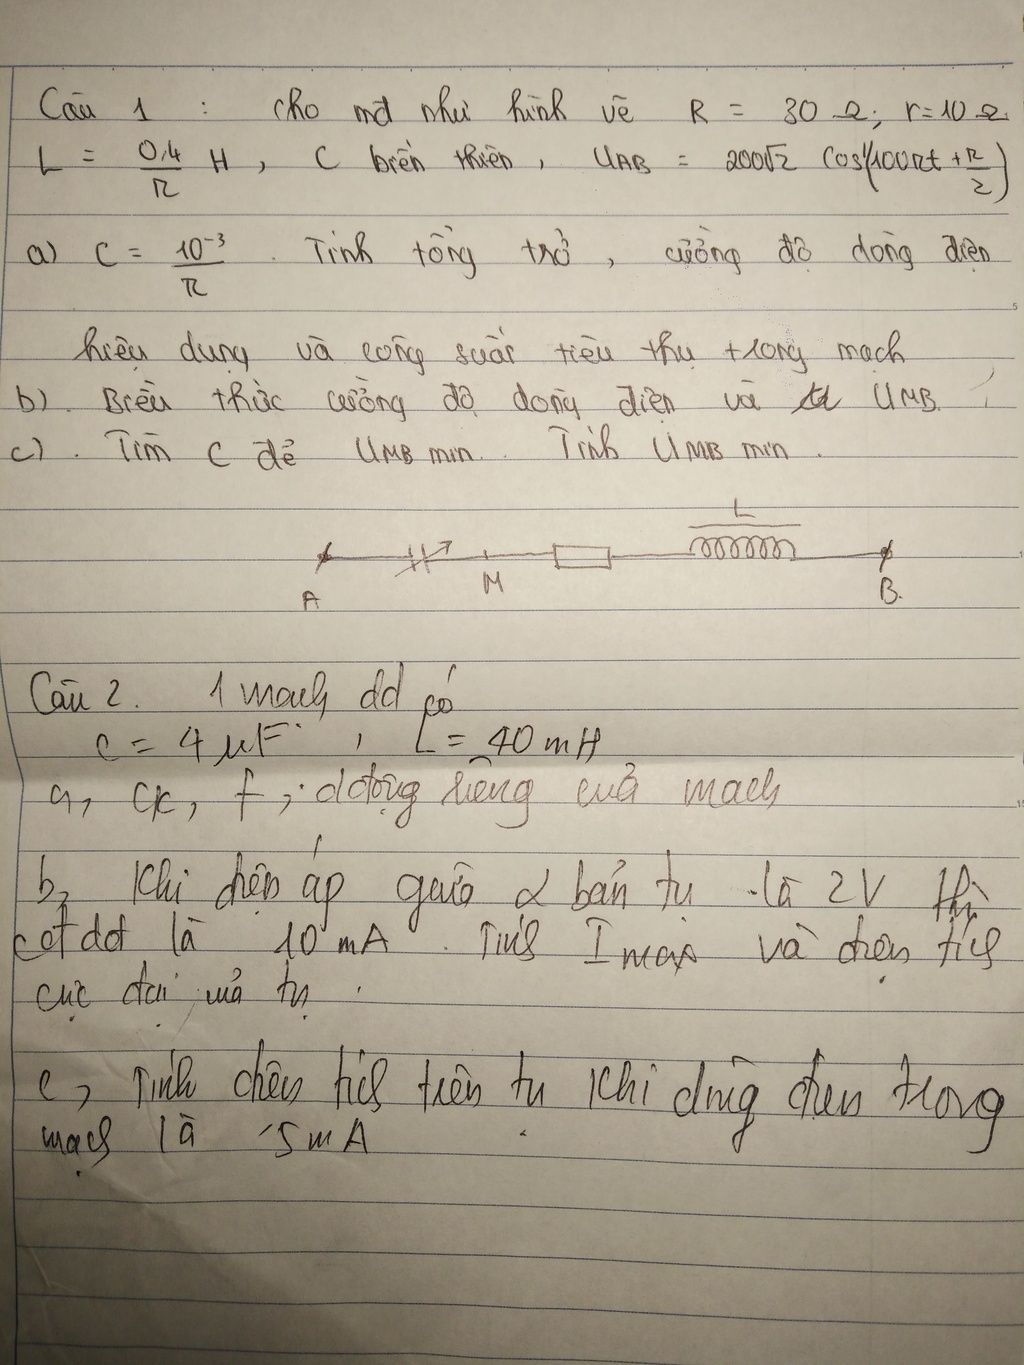 Câu 1 : cho mđ như hình vẽ R = 30 Ω; r=10 Ω
L = 0,4/π H, C biến thiên, UAB = 200√2 cos(100πt + π/2)
a) C = 10⁻³/π . Tính tổng trở, cường độ dòng điện
hiệu dụng và công suất tiêu thụ trong mạch
b). Biểu thức cường độ dòng điện và UMB.
c). Tìm C để UMB min. Tính UMB min.
L
A M B.
Câu 2. 1 mạch dđ có
C = 4 μF, L = 40 mH
a, CK, f, dđộng riêng của mạch
b, Khi điện áp giữa 2 bản tụ là 2V thì
cđdđ là 10 mA. Tính Imax và điện tích
cực đại của tụ.
c, Tính điện tích trên tụ khi dòng điện trong
mạch là 5mA